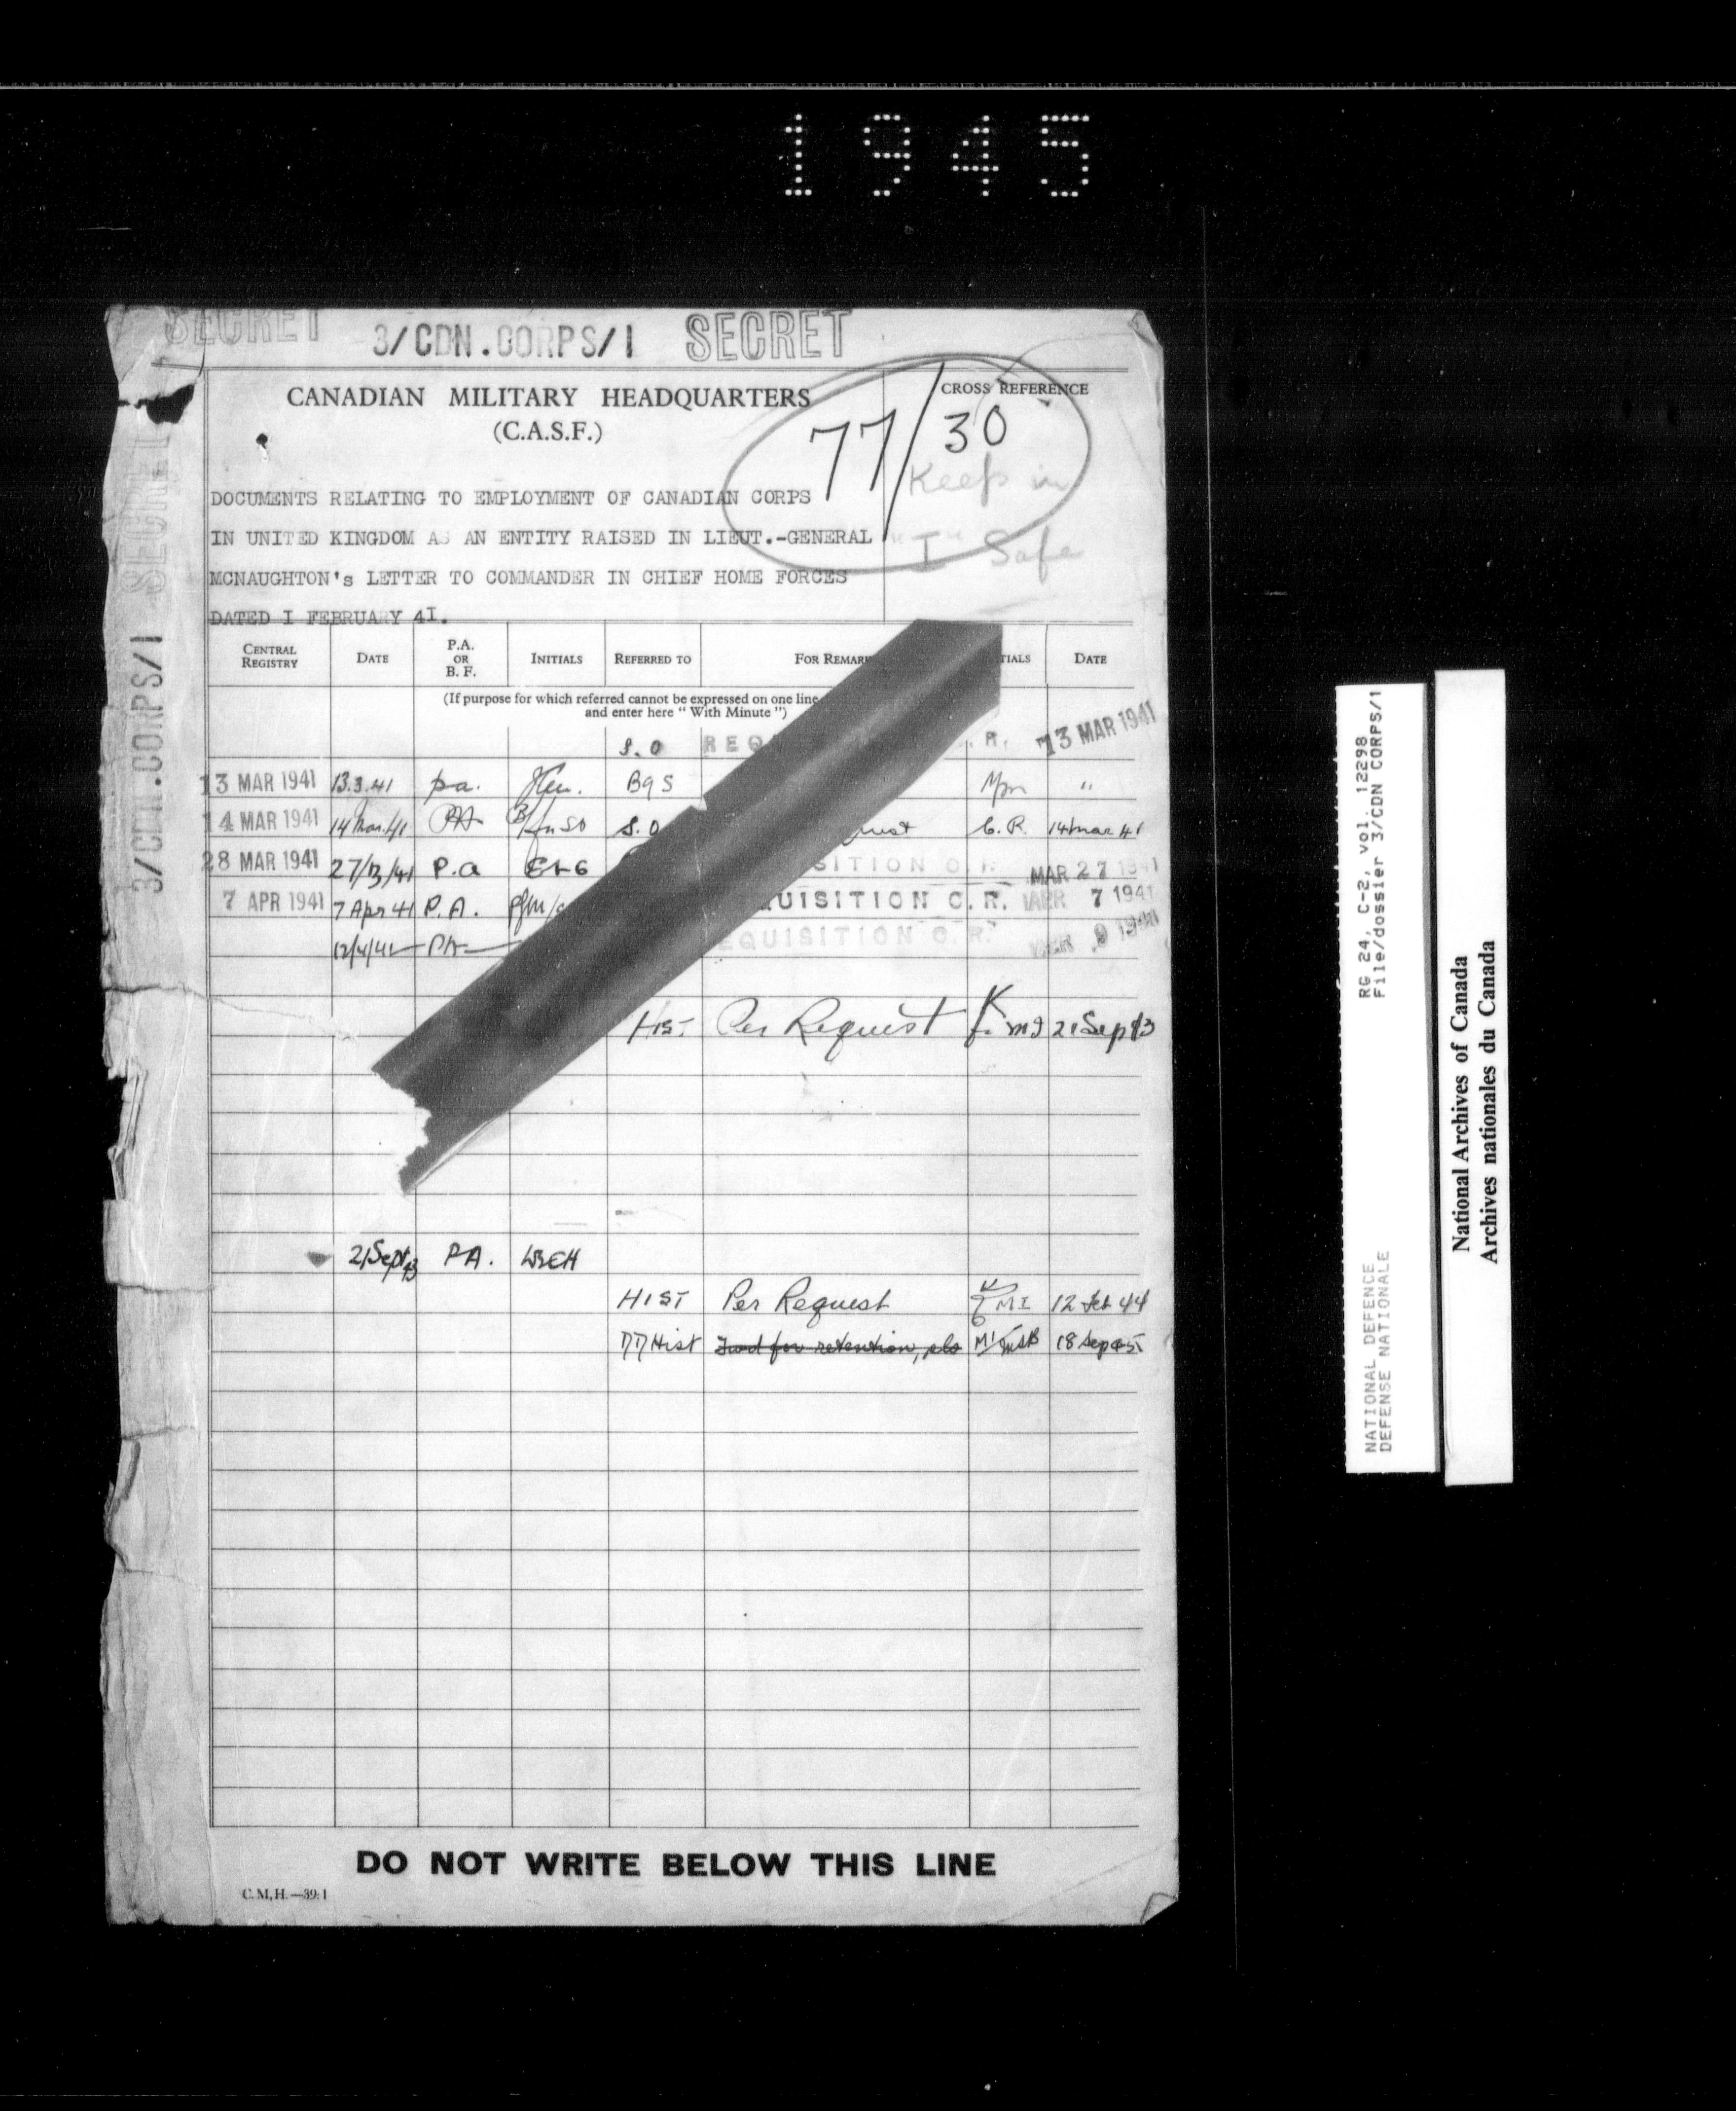 1945
SECRET 3/CDN.CORPS/1 SECRET
CANADIAN MILITARY HEADQUARTERS
(C.A.S.F.)
CROSS REFERENCE
77/30
Keep in
"I" Safe
DOCUMENTS RELATING TO EMPLOYMENT OF CANADIAN CORPS
IN UNITED KINGDOM AS AN ENTITY RAISED IN LIEUT.-GENERAL
MCNAUGHTON's LETTER TO COMMANDER IN CHIEF HOME FORCES
DATED I FEBRUARY 4I.
CENTRAL REGISTRY DATE P.A. OR B.F. INITIALS REFERRED TO FOR REMAR TIALS DATE
(If purpose for which referred cannot be expressed on one line
and enter here "With Minute")
S.O REQ .R. 13 MAR 1941
13 MAR 1941 13.3.41 pa. BGS "
14 MAR 1941 14 Mar 41 PA S.O C.R. 14 mar 41
28 MAR 1941 27/3/41 P.a ELG SITION C.R. MAR 27 1941
7 APR 1941 7 Apr 41 P.A. QUISITION C.R. APR 7 1941
12/4/41 PA EQUISITION C.R. 9 1941
HIST Per Request 21 Sep 43
21 Sept 43 PA. WBEH
HIST Per Request MI 12 Feb 44
77 Hist Fwd for retention, pls 18 Sep 45
DO NOT WRITE BELOW THIS LINE
C.M.H.—39:1
3/CDN.CORPS/1 SECRET
RG 24, C-2, vol. 12298
File/dossier 3/CDN CORPS/1
NATIONAL DEFENCE
DEFENSE NATIONALE
National Archives of Canada
Archives nationales du Canada